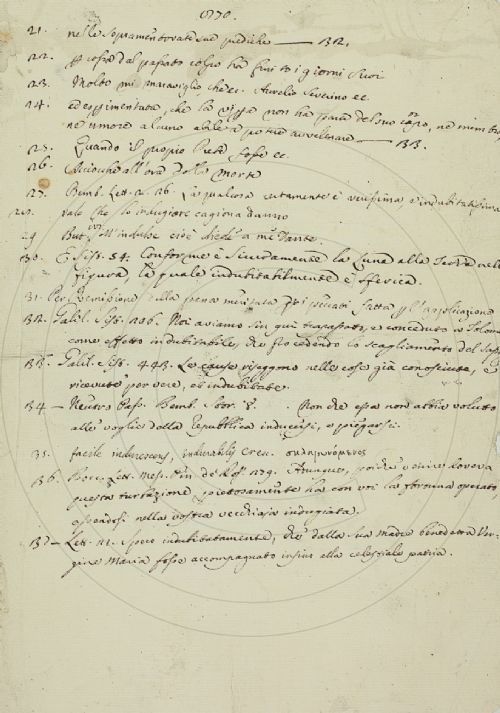 0770.
21. nelle soprammentovate sue prediche — BR.
22. cosa dal papato ha finiti i giorni suoi
23. Molto mi maraviglio che ec. Aurelio Severino ec.
24. ed esperimentata, che la vipera non ha parte del suo corpo, ne membro,
ne umore alcuno abile a poter avvelenare — BR.
25. Quando il proprio Prete fosse ec.
26. Acciocchè all'ora della morte
27. Bemb. Lett. 2. 126. la qual cosa certamente è verissima e indubitatissima
28. vale che lo indugiare cagiona danno
29 But. M'indulse cioè diede a me Dante.
30. G. Sist. 54. Conforme è sicuramente la Luna alla Terra nella
figura, la quale indubitabilmente è sferica.
31. Per remissione della pena meritata pei peccati fatta coll'applicazione
32. Galil. Sist. 226. Noi aviamo sin qui trapassato, e conceduto a Tolom
come effetto indubitabile, che succedendo lo scagliamento del sasso
33. Galil. Sist. 443. Le cause riseggono nelle cose già conosciute,
ricevute per vere, ed indubitate.
34 — Neutro Pass. Bemb. Stor. 8. Non che essa non abbia voluto
alle voglie della Repubblica inducersi, o piegarsi.
35. facile indurescens, indurabilis Cresc. σκληρυνόμενος
36. Bocc. Lett. Mess. Pin. de' Ross. 279. Adunque, poichè
questa turbazione, pietosamente ha con voi la fortuna operato
essendosi nella vostra vecchiezza indugiata.
37 — Lett. 21. Spero indubitatamente, che dalla sua madre benedetta Ver-
gine Maria fosse accompagnato insino alla celestiale patria.